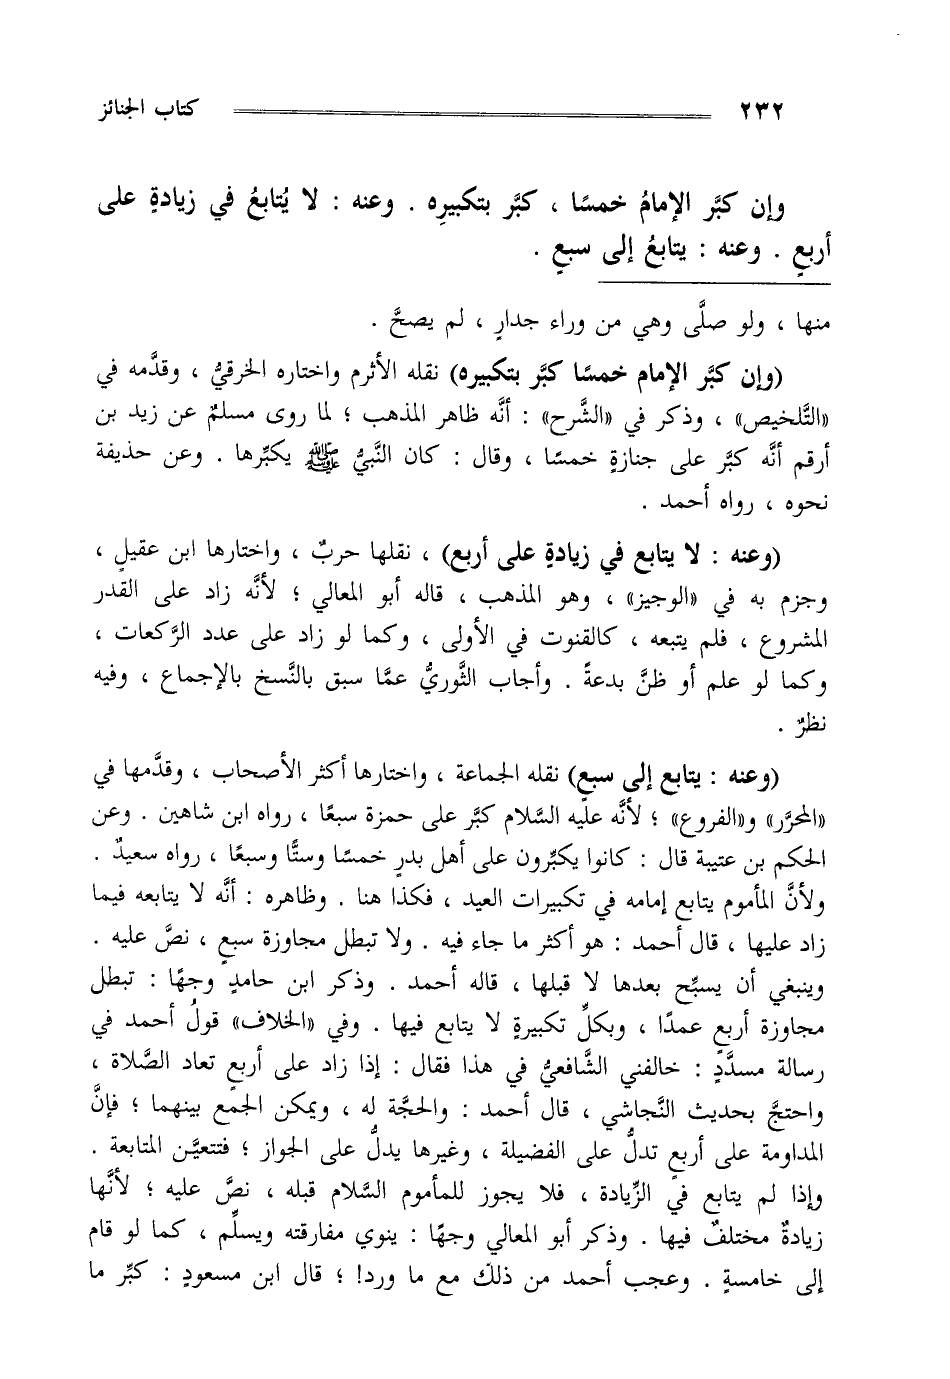 ٢٣٢ كتاب الجنائز
وإن كبَّر الإمامُ خمسًا ، كبَّر بتكبيرِه . وعنه : لا يُتابعُ في زيادةٍ على
أربعٍ . وعنه : يتابعُ إلى سبعٍ .
منها ، ولو صلَّى وهي من وراء جدارٍ ، لم يصحَّ .
(وإن كبَّر الإمام خمسًا كبَّر بتكبيره) نقله الأثرم واختاره الخرقيُّ ، وقدَّمه في
«التَّلخيص» ، وذكر في «الشَّرح» : أنَّه ظاهر المذهب ؛ لما روى مسلمٌ عن زيد بن
أرقم أنَّه كبَّر على جنازةٍ خمسًا ، وقال : كان النَّبيُّ ﷺ يكبِّرها . وعن حذيفة
نحوه ، رواه أحمد .
(وعنه : لا يتابع في زيادةٍ على أربع) ، نقلها حربٌ ، واختارها ابن عقيلٍ ،
وجزم به في «الوجيز» ، وهو المذهب ، قاله أبو المعالي ؛ لأنَّه زاد على القدر
المشروع ، فلم يتبعه ، كالقنوت في الأولى ، وكما لو زاد على عدد الرَّكعات ،
وكما لو علم أو ظنَّ بدعةً . وأجاب الثَّوريُّ عمَّا سبق بالنَّسخ بالإجماع ، وفيه
نظرٌ .
(وعنه : يتابع إلى سبعٍ) نقله الجماعة ، واختارها أكثر الأصحاب ، وقدَّمها في
«المحرَّر» و«الفروع» ؛ لأنَّه عليه السَّلام كبَّر على حمزة سبعًا ، رواه ابن شاهين . وعن
الحكم بن عتيبة قال : كانوا يكبِّرون على أهل بدرٍ خمسًا وستًّا وسبعًا ، رواه سعيدٌ .
ولأنَّ المأموم يتابع إمامه في تكبيرات العيد ، فكذا هنا . وظاهره : أنَّه لا يتابعه فيما
زاد عليها ، قال أحمد : هو أكثر ما جاء فيه . ولا تبطل مجاوزة سبعٍ ، نصَّ عليه .
وينبغي أن يسبِّح بعدها لا قبلها ، قاله أحمد . وذكر ابن حامدٍ وجهًا : تبطل
مجاوزة أربعٍ عمدًا ، وبكلِّ تكبيرةٍ لا يتابع فيها . وفي «الخلاف» قولُ أحمد في
رسالة مسدَّدٍ : خالفني الشَّافعيُّ في هذا فقال : إذا زاد على أربعٍ تعاد الصَّلاة ،
واحتجَّ بحديث النَّجاشي ، قال أحمد : والحجَّة له ، ويمكن الجمع بينهما ؛ فإنَّ
المداومة على أربعٍ تدلُّ على الفضيلة ، وغيرها يدلُّ على الجواز ؛ فتتعيَّن المتابعة .
وإذا لم يتابع في الزِّيادة ، فلا يجوز للمأموم السَّلام قبله ، نصَّ عليه ؛ لأنَّها
زيادةٌ مختلفٌ فيها . وذكر أبو المعالي وجهًا : ينوي مفارقته ويسلِّم ، كما لو قام
إلى خامسةٍ . وعجب أحمد من ذلك مع ما ورد! ؛ قال ابن مسعودٍ : كبِّر ما